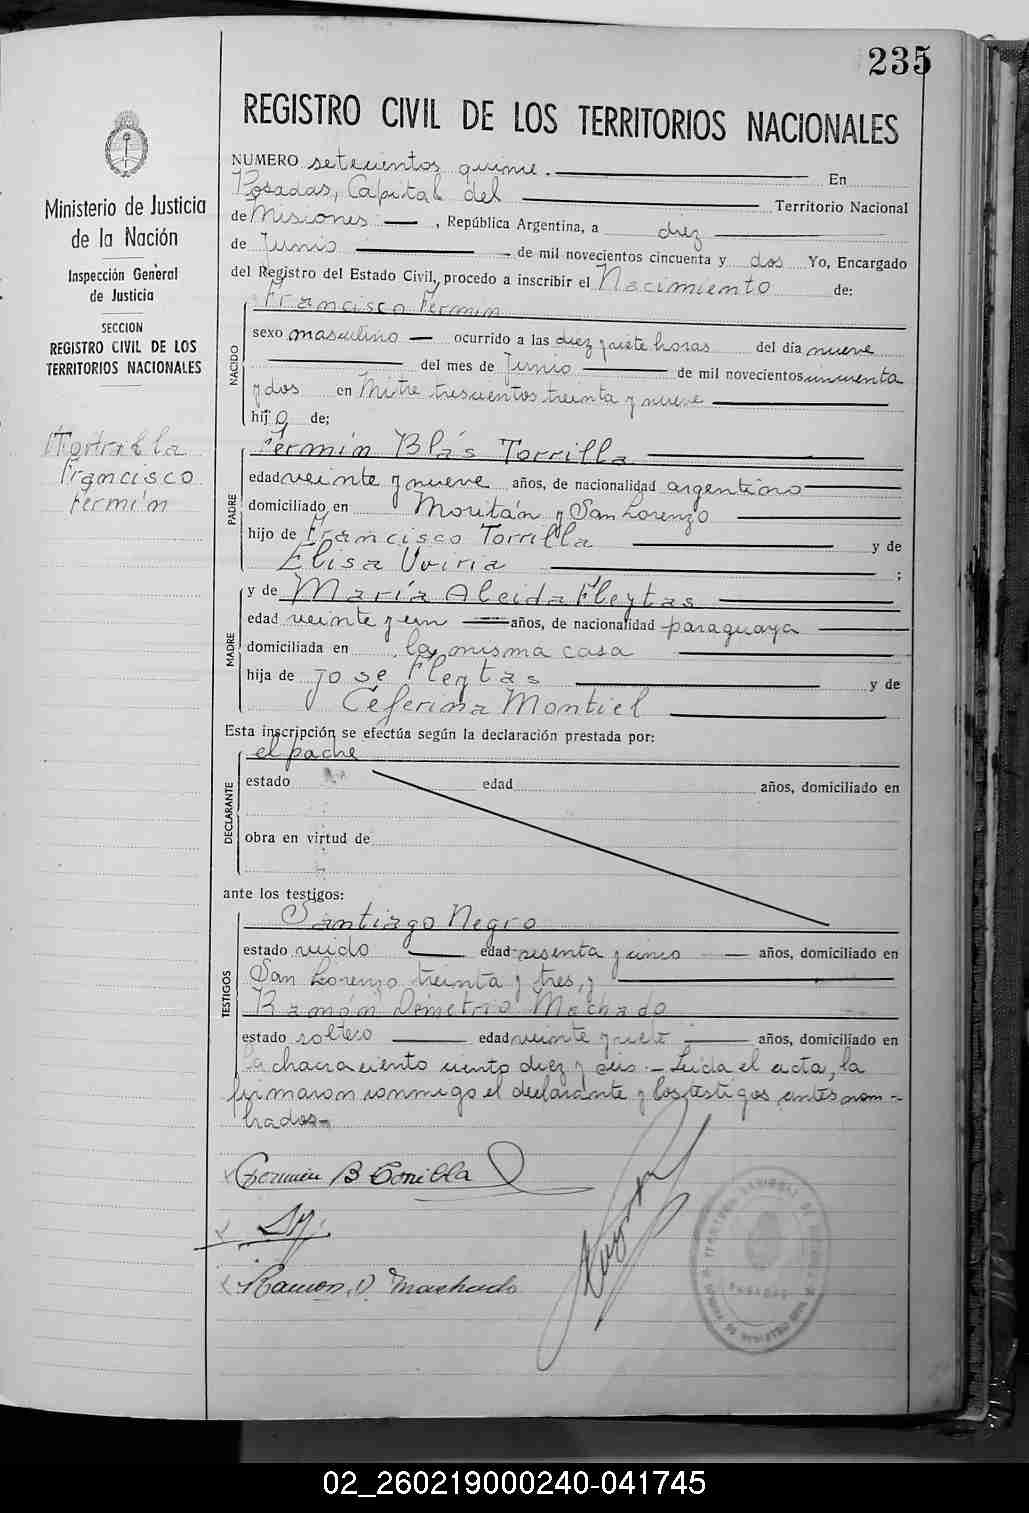 235
REGISTRO CIVIL DE LOS TERRITORIOS NACIONALES
Ministerio de Justicia
de la Nación
Inspección General
de Justicia
SECCION
REGISTRO CIVIL DE LOS
TERRITORIOS NACIONALES
Francisco
Fermín
NUMERO setecientos quince. En
Posadas, Capital del Territorio Nacional
de Misiones, República Argentina, a diez
de Junio de mil novecientos cincuenta y dos Yo, Encargado
del Registro del Estado Civil, procedo a inscribir el Nacimiento de:
NACIDO
Francisco Fermin
sexo masculino ocurrido a las diez y siete horas del día nueve
del mes de Junio de mil novecientos cincuenta
y dos en Mitre trescientos treinta y nueve
hijo de;
PADRE
Fermín Blás Torrilla
edad veinte y nueve años, de nacionalidad argentino
domiciliado en y San Lorenzo
hijo de Francisco Torrilla y de
Elisa ;
MADRE
y de María Alcida Fleytas
edad veinte y un años, de nacionalidad paraguaya
domiciliada en la misma casa
hija de José Fleytas y de
Ceferina Montiel
Esta inscripción se efectúa según la declaración prestada por:
DECLARANTE
el padre
estado edad años, domiciliado en
obra en virtud de
ante los testigos:
TESTIGOS
Santiago Negro
estado viudo edad sesenta y cinco años, domiciliado en
San Lorenzo treinta y tres, y
Ramón Demetrio Machado
estado soltero edad veinte y siete años, domiciliado en
la chacra ciento ciento diez y seis.- Leida el acta, la
firmaron conmigo el declarante y los testigos antes nom-
brados-
Fermín B Torrilla
Ramon D. Machado
POSADAS
02_260219000240-041745